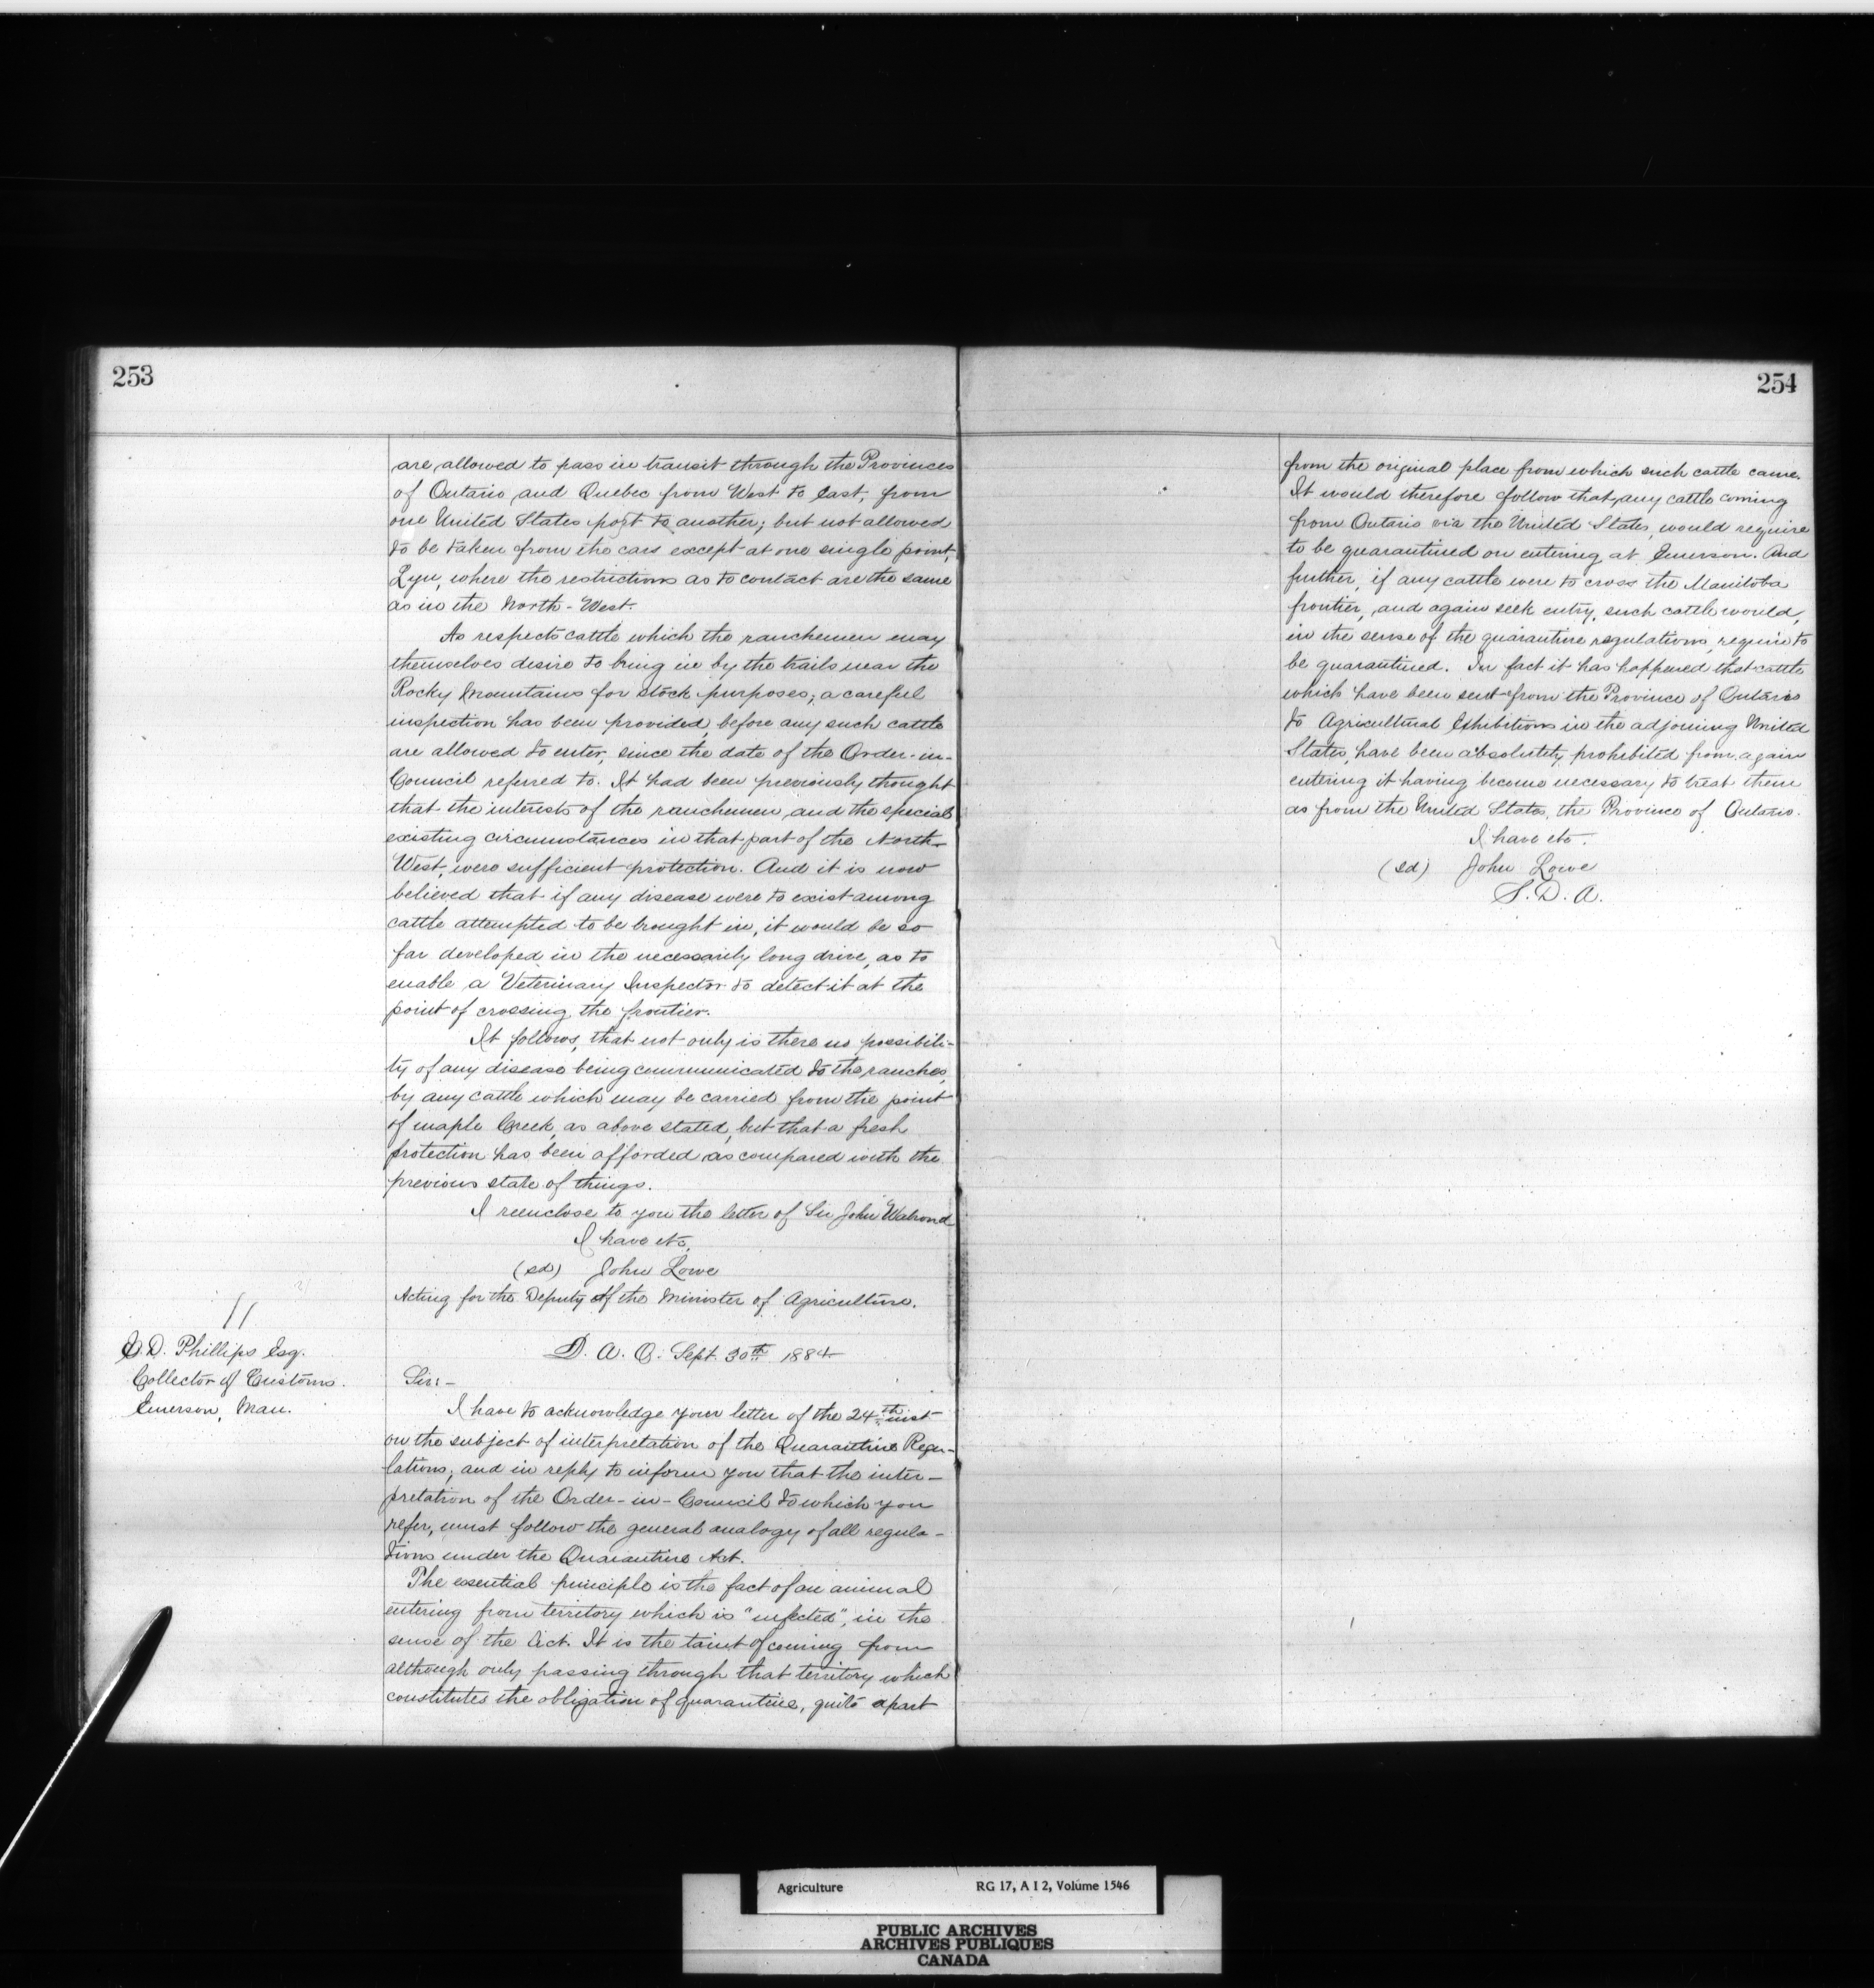 253
are allowed to pass in transit through the Provinces
of Ontario and Quebec from West to East, from
one United States port to another; but not allowed
to be taken from the cars except at one single point,
Lyn, where the restrictions as to contact are the same
as in the North-West.
As respects cattle which the ranchemen may
themselves desire to bring in by the trails near the
Rocky Mountains for stock purposes; a careful
inspection has been provided, before any such cattle
are allowed to enter, since the date of the Order-in-
Council referred to. It had been previously thought
that the interests of the ranchemen, and the special
existing circumstances in that part of the North-
West, were sufficient protection. And it is now
believed that if any disease were to exist among
cattle attempted to be brought in, it would be so
far developed in the necessarily long drive, as to
enable a Veterinary Inspector to detect it at the
point of crossing the frontier.
It follows, that not only is there no possibili-
ty of any disease being communicated to the ranches,
by any cattle which may be carried from the point
of Maple Creek, as above stated, but that a fresh
protection has been afforded as compared with the
previous state of things.
I reenclose to you the letter of Sir John Walrond
I have etc,
(sd) John Lowe
Acting for the Deputy of the Minister of Agriculture.
11
D. Phillips Esq.
Collector of Customs.
Emerson, Man.
D. A. O. Sept. 30th 1884
Sir:-
I have to acknowledge your letter of the 24th inst
on the subject of interpretation of the Quarantine Regu-
lations; and in reply to inform you that the inter-
pretation of the Order-in-Council to which you
refer, must follow the general analogy of all regula-
tions under the Quarantine Act.
The essential principle is the fact of an animal
entering from territory which is "infected", in the
sense of the Act. It is the taint of coming from
although only passing through that territory which
constitutes the obligation of quarantine, quite apart
254
from the original place from which such cattle came.
It would therefore follow that any cattle coming
from Ontario via the United States, would require
to be quarantined on entering at Emerson. And
further, if any cattle were to cross the Manitoba
frontier, and again seek entry, such cattle would,
in the sense of the quarantine regulations, require to
be quarantined. In fact it has happened that cattle
which have been sent from the Province of Ontario
to Agricultural Exhibitions in the adjoining United
States, have been absolutely prohibited from again
entering it having become necessary to treat them
as from the United States, the Province of Ontario.
I have etc.
(sd) John Lowe
S. D. A.
Agriculture RG 17, A I 2, Volume 1546
PUBLIC ARCHIVES
ARCHIVES PUBLIQUES
CANADA